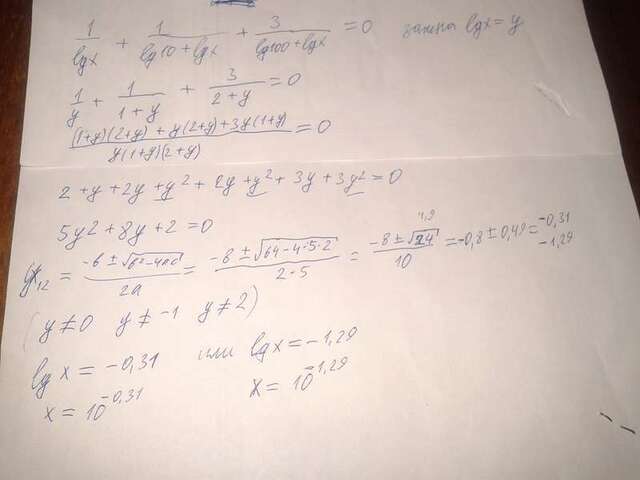 1/lgx + 1/(lg10 + lgx) + 3/(lg100 + lgx) = 0 замена lgx = y
1/y + 1/(1+y) + 3/(2+y) = 0
((1+y)(2+y) + y(2+y) + 3y(1+y))/(y(1+y)(2+y)) = 0
2 + y + 2y + y² + 2y + y² + 3y + 3y² = 0
5y2 + 8y + 2 = 0
y12 = (-b ± √(b²-4ac))/2a = (-8 ± √(64-4·5·2))/(2·5) = (-8 ± √24)/10 = -0,8 ± 0,49 = -0,31 -1,29
4,9
(y ≠ 0 y ≠ -1 y ≠ 2)
lg x = -0,31 или lgx = -1,29
x = 10^-0,31 x = 10^-1,29